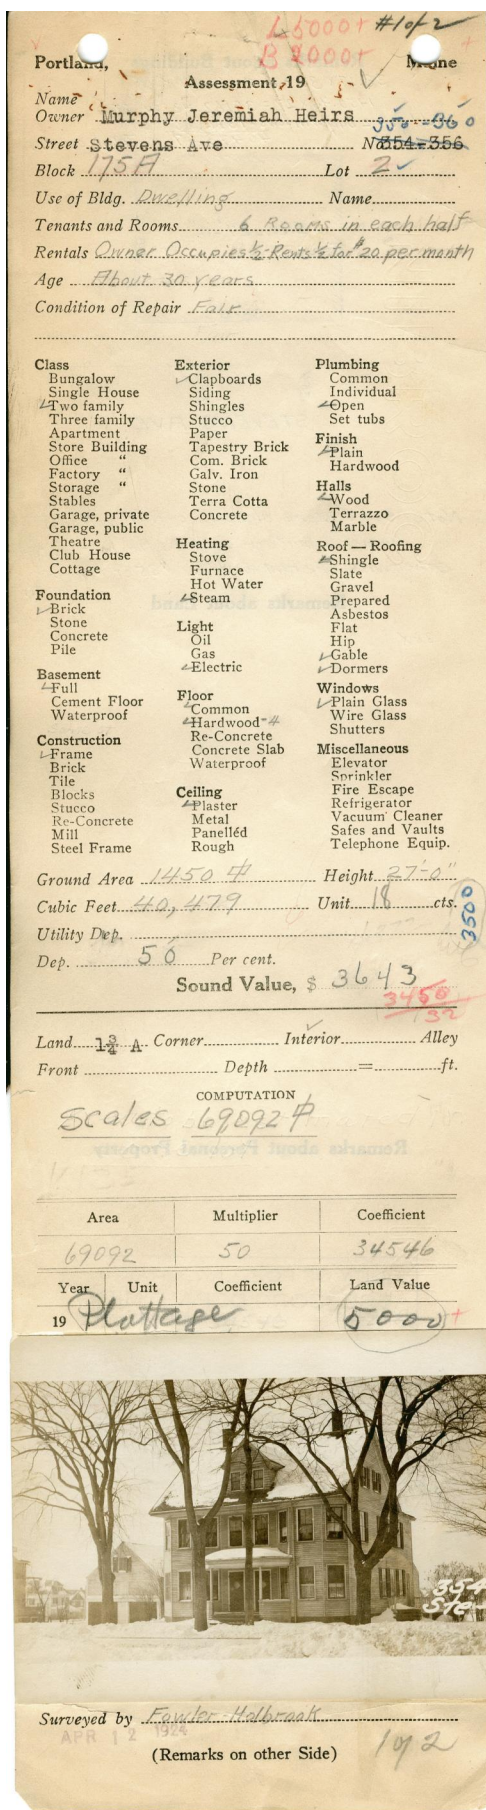 L 5000+ #1 of 2
B 2000+
Portland, Maine
Assessment, 19
Name
Owner Murphy Jeremiah Heirs 350-360
Street Stevens Ave No 354-356
Block 175A Lot 2
Use of Bldg. Dwelling Name
Tenants and Rooms 6 Rooms in each half
Rentals Owner Occupies ½-Rents ½ for $20 per month
Age About 30 years
Condition of Repair Fair
Class
Bungalow
Single House
Two family
Three family
Apartment
Store Building
Office "
Factory "
Storage "
Stables
Garage, private
Garage, public
Theatre
Club House
Cottage
Foundation
Brick
Stone
Concrete
Pile
Basement
Full
Cement Floor
Waterproof
Construction
Frame
Brick
Tile
Blocks
Stucco
Re-Concrete
Mill
Steel Frame
Exterior
Clapboards
Siding
Shingles
Stucco
Paper
Tapestry Brick
Com. Brick
Galv. Iron
Stone
Terra Cotta
Concrete
Heating
Stove
Furnace
Hot Water
Steam
Light
Oil
Gas
Electric
Floor
Common
Hardwood-4
Re-Concrete
Concrete Slab
Waterproof
Ceiling
Plaster
Metal
Panelled
Rough
Plumbing
Common
Individual
Open
Set tubs
Finish
Plain
Hardwood
Halls
Wood
Terrazzo
Marble
Roof — Roofing
Shingle
Slate
Gravel
Prepared
Asbestos
Flat
Hip
Gable
Dormers
Windows
Plain Glass
Wire Glass
Shutters
Miscellaneous
Elevator
Sprinkler
Fire Escape
Refrigerator
Vacuum Cleaner
Safes and Vaults
Telephone Equip.
Ground Area 1450 Height 27'-0"
Cubic Feet 40,479 Unit 18 cts.
3500
Utility Dep.
Dep. 50 Per cent.
Sound Value, $ 3643
3450
32
Land 1¾ A Corner Interior Alley
Front Depth = ft.
COMPUTATION
Scales 69092
Area Multiplier Coefficient
69092 50 34546
Year Unit Coefficient Land Value
19 Plottage 5000+
354
Ste-
Surveyed by Fowler-Holbrook
APR 12 1924
(Remarks on other Side) 1 of 2